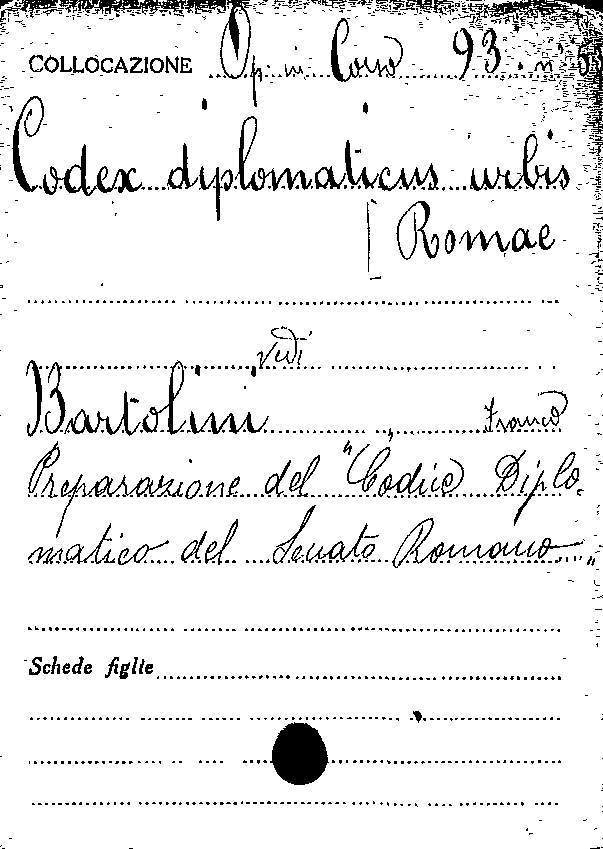 COLLOCAZIONE Op. in Corso 93. n° 55
Codex diplomaticus urbis
[Romae
vedi
Bartolini Franco
Preparazione del "Codice Diplo-
matico del Senato Romano"
Schede figlie